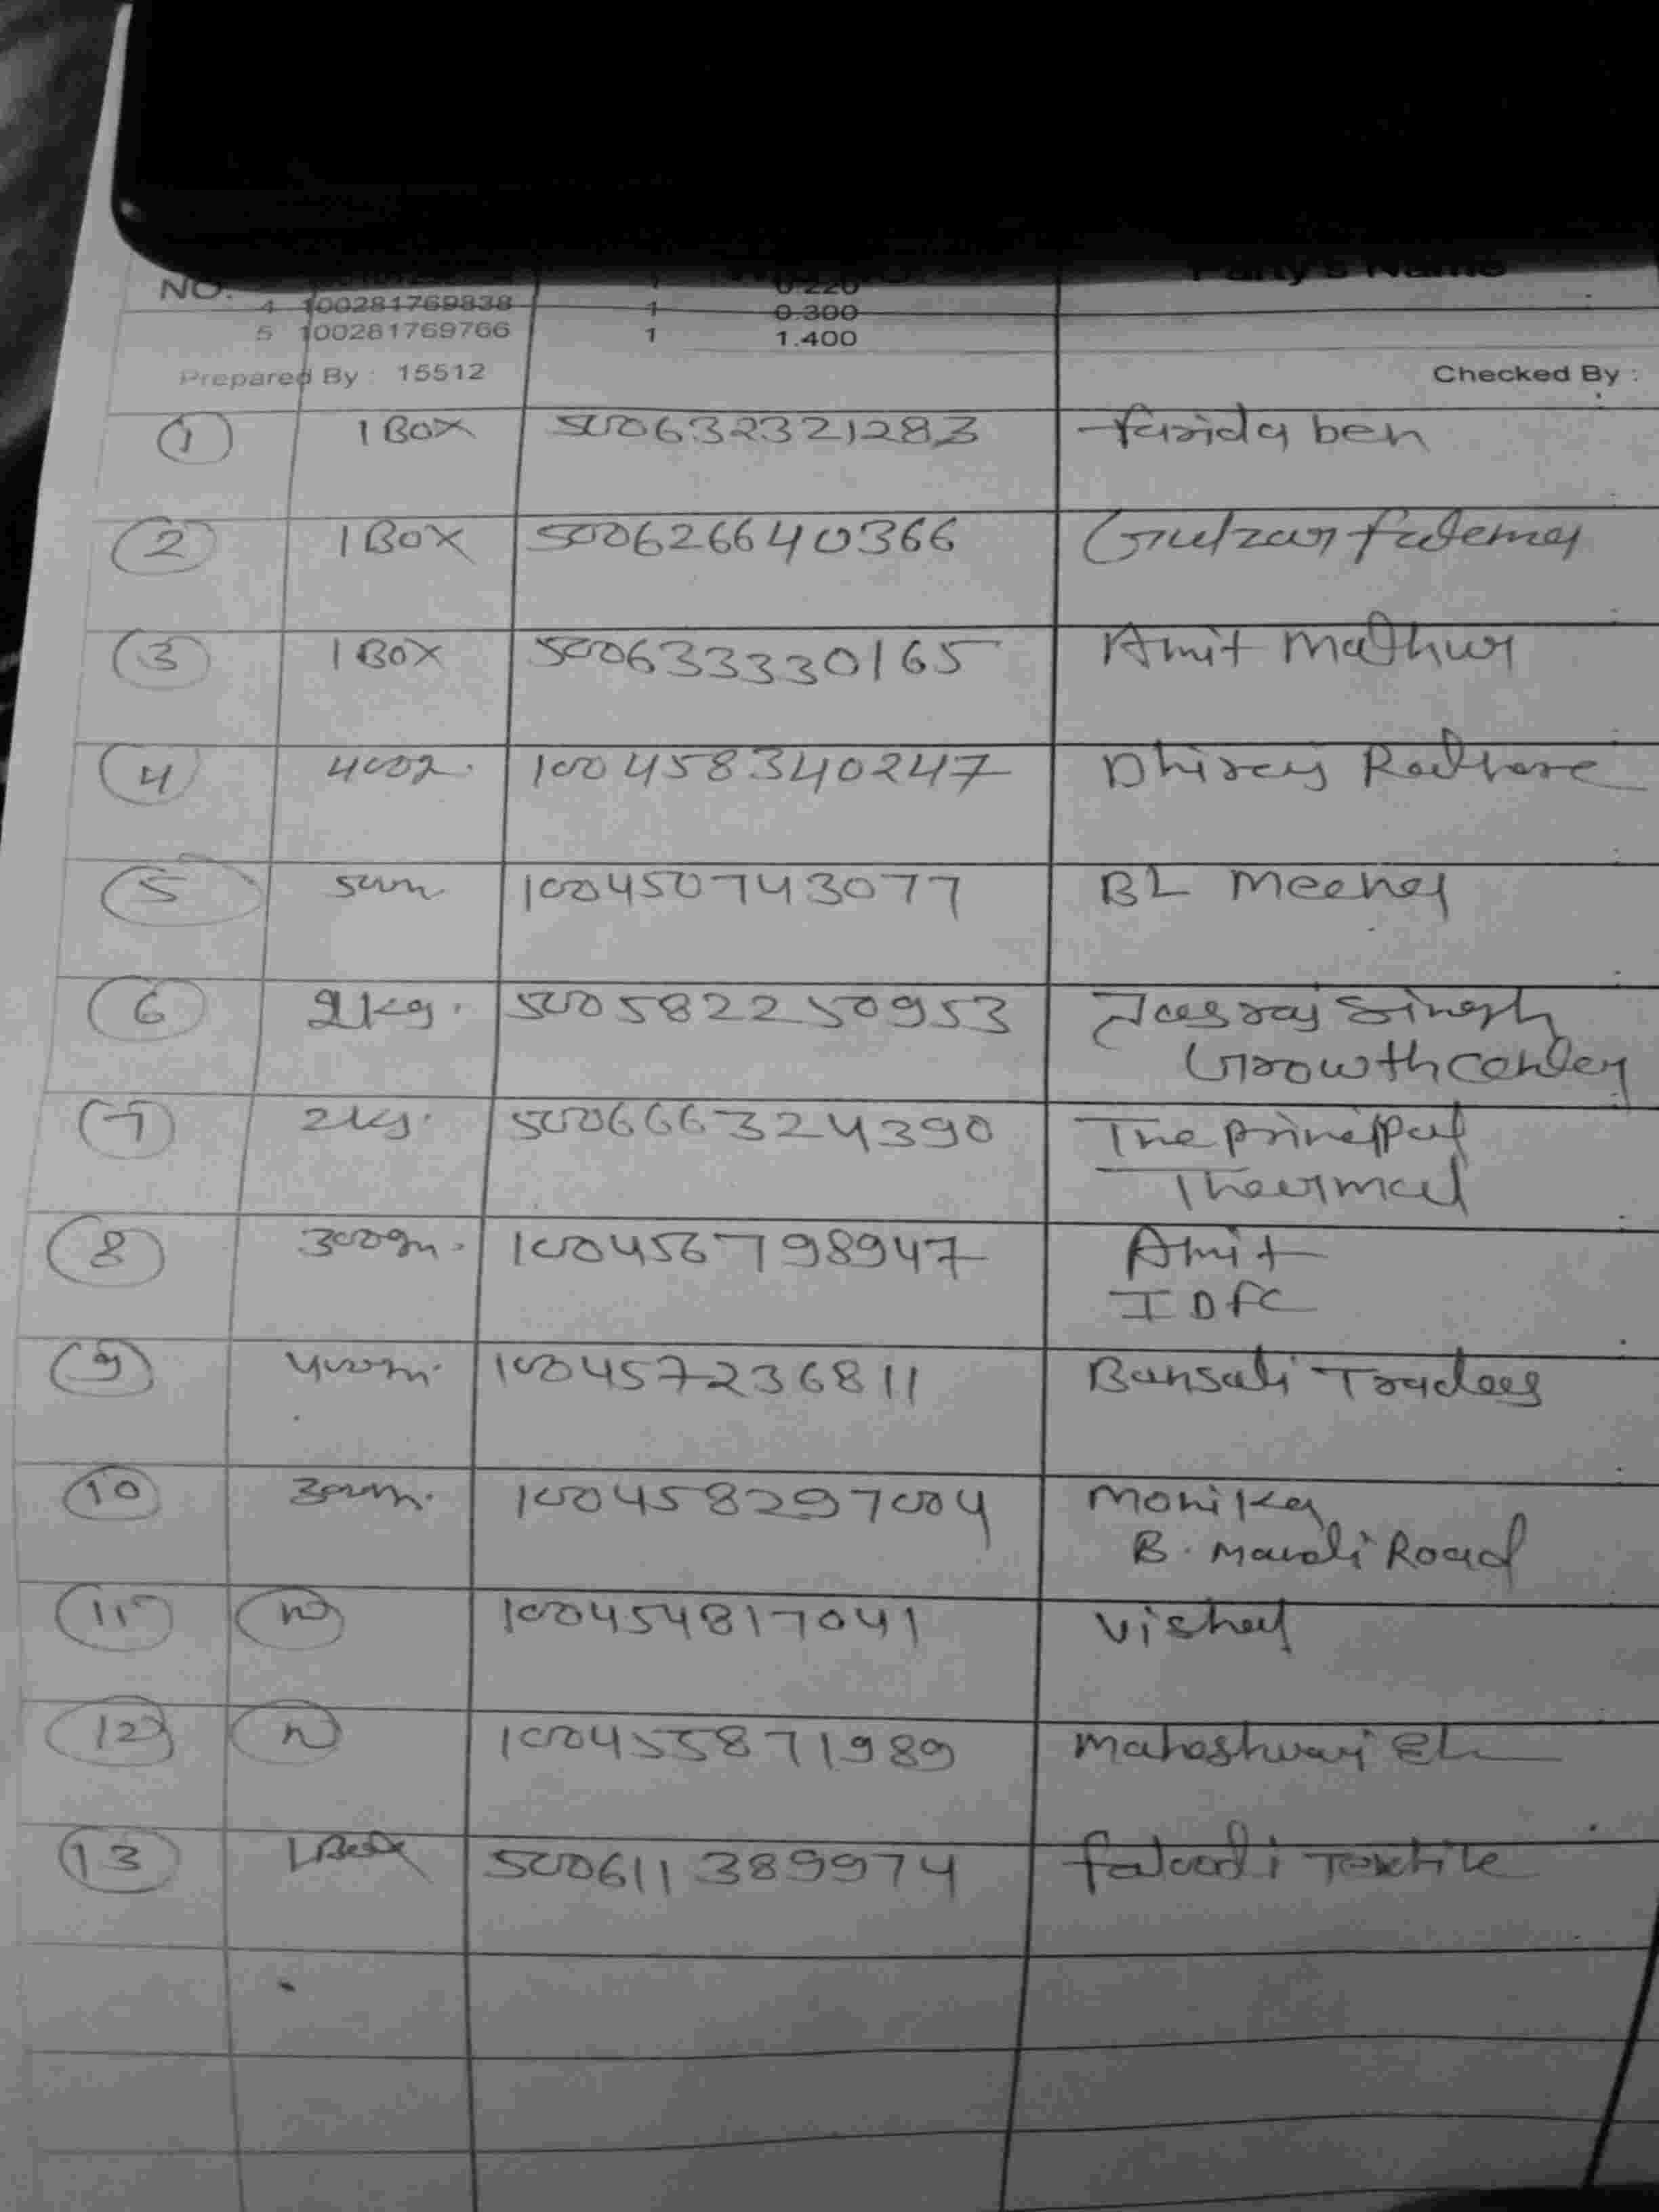 NO. Party's Name
0.220
4 100281769838 1 0.300
5 100281769766 1 1.400
Prepared By : 15512 Checked By :
1 1 BOX 500632321283 farida ben
2 1 BOX 500626640366 Gulzar fatema
3 1 BOX 500633330165 Amit Mathur
4 100458340247 Dhiraj Rathore
5 100450743077 BL Meena
6 2kg. 500582250953 Jasraj Singh
Growth Center
7 2kg. 500666324390 The principal
Thermal
8 300gm. 100456798947 Amit
IDFC
9 400m. 100457236811 Bansali Traders
10 300m. 100458297004 Monika
B. Mandi Road
11 n 100454817041 Vishal
12 n 100455871989 Maheshwari El
13 1 Box 500611389974 falodi Textile